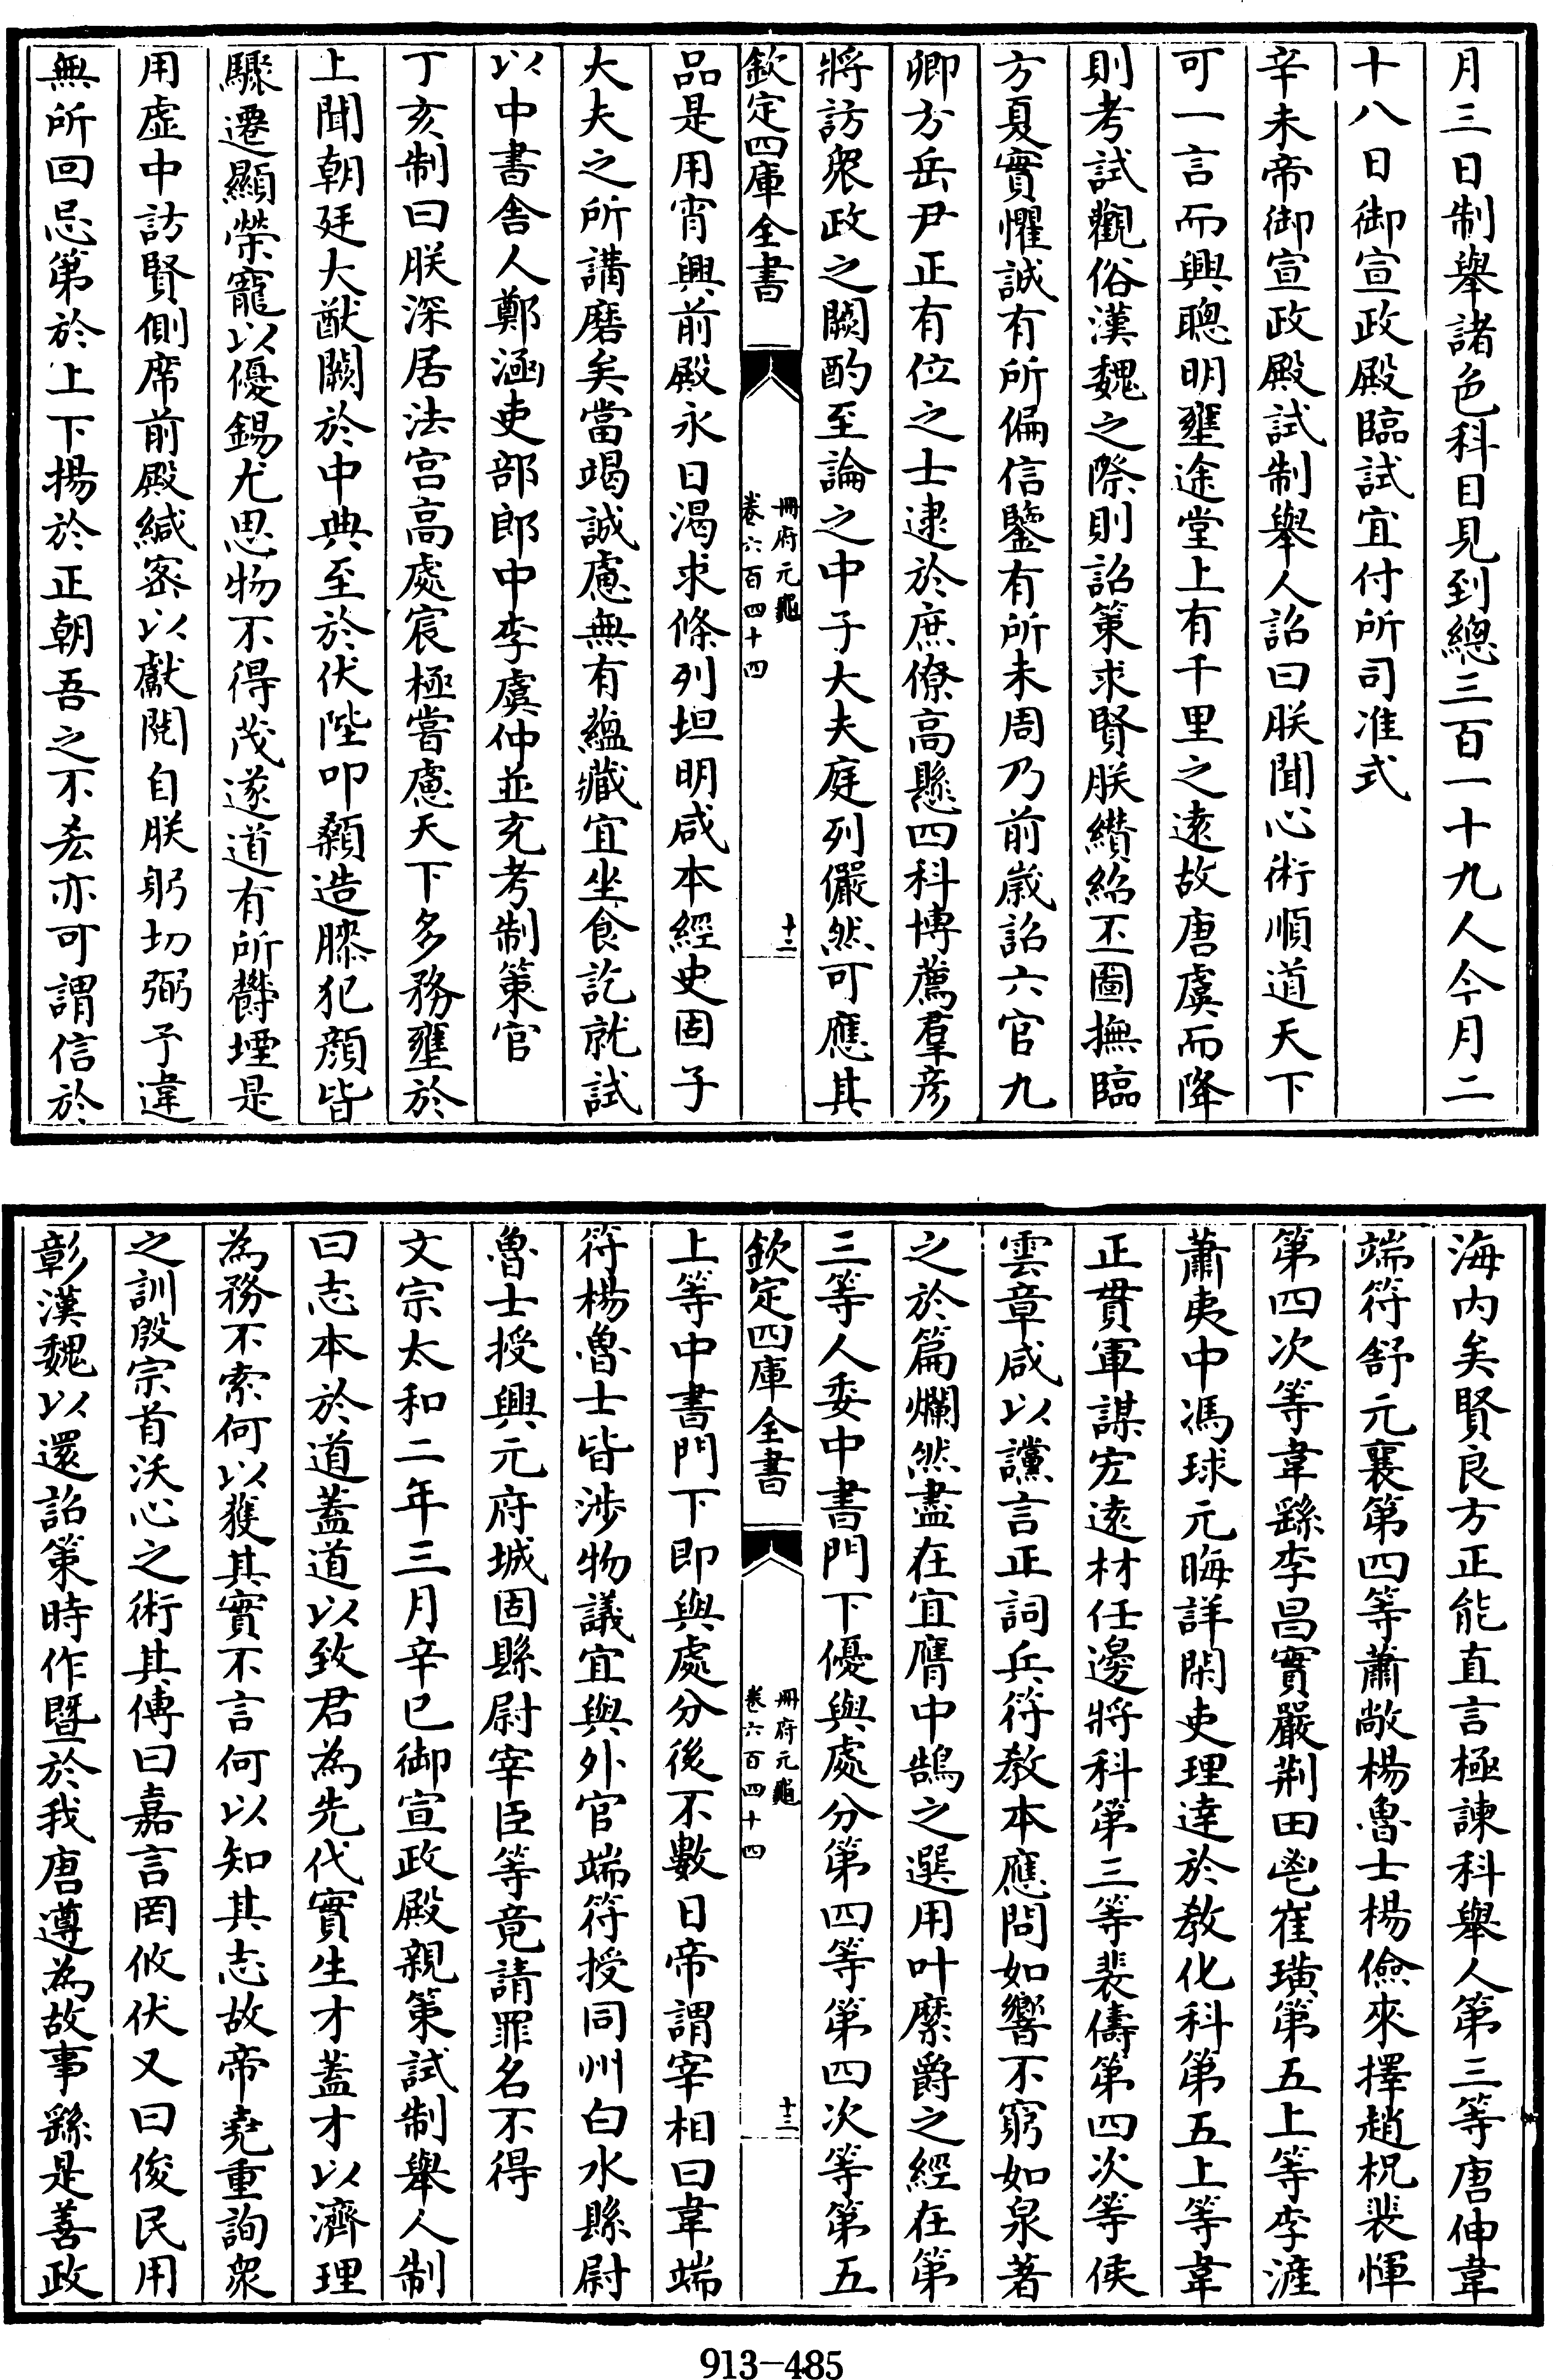 月三日制舉諸色科目見到總三百一十九人今月二
十八日御宣政殿臨試宜付所司准式
辛未帝御宣政殿試制舉人詔曰朕聞心術順道天下
可一言而興聰明壅途堂上有千里之遠故唐虞而降
則考試觀俗漢魏之際則詔策求賢朕纘紹丕圖撫臨
方夏實懼誠有所偏信鑒有所未周乃前歲詔六官九
卿方岳尹正有位之士逮於庶僚高懸四科博薦羣彦
將訪衆政之闕酌至論之中子大夫庭列儼然可應其
欽定四庫全書
冊府元龜
卷六百四十四
十二
品是用宵興前殿永日渴求條列坦明咸本經史固子
大夫之所講磨矣當竭誠慮無有蘊藏宜坐食訖就試
以中書舍人鄭涵吏部郎中李虞仲並充考制策官
丁亥制曰朕深居法宫高處宸極嘗慮天下多務壅於
上聞朝廷大猷闕於中典至於伏陛叩顙造膝犯顔皆
驟遷顯榮寵以優錫尤思物不得茂遂道有所欝堙是
用虚中訪賢側席前殿緘密以獻閱自朕躬切弼予違
無所回忌第於上下揚於正朝吾之不𢙣亦可謂信於
海内矣賢良方正能直言極諫科舉人第三等唐伸韋
端符舒元襄第四等蕭敞楊魯士楊儉來擇趙柷裴惲
第四次等韋繇李昌實嚴荆田鬯崔璜第五上等李漄
蕭夷中馮球元晦詳閑吏理達於教化科第五上等韋
正貫軍謀宏遠材任邊將科第三等裴儔第四次等侯
雲章咸以讜言正詞兵符教本應問如響不窮如泉著
之於篇爛然盡在宜膺中鵠之選用叶縻爵之經在第
三等人委中書門下優與處分第四等第四次等第五
欽定四庫全書
冊府元龜
卷六百四十四
十三
上等中書門下即與處分後不數日帝謂宰相曰韋端
符楊魯士皆涉物議宜與外官端符授同州白水縣尉
魯士授興元府城固縣尉宰臣等竟請罪名不得
文宗太和二年三月辛巳御宣政殿親策試制舉人制
曰志本於道葢道以致君為先代實生才葢才以濟理
為務不索何以獲其實不言何以知其志故帝堯重詢衆
之訓殷宗首沃心之術其傳曰嘉言罔攸伏又曰俊民用
彰漢魏以還詔策時作暨於我唐遵為故事繇是善政
913—485